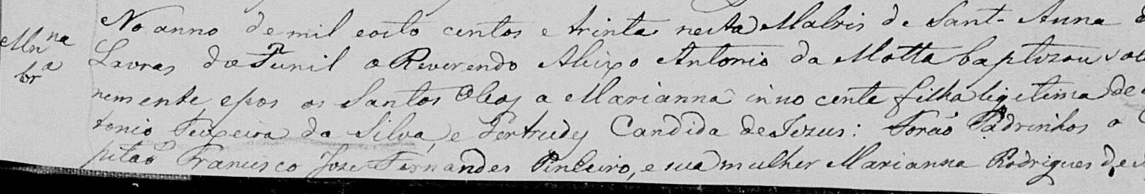 No anno de mil eoito centos e trinta nesta Matris de Sant-Anna d
Mnna Lavras do Funil o Reverendo Aleixo Antonio da Motta baptizou sol
br.a nemente, epos os Santos Oleos a Marianna inno cente filha legetima de
tonio Teixeira da Silva e Gertrudes Candida de Jezus: Forão Padrinhos o C
pitão Francisco Joze Fernandes Penteiro, e sua mulher Marianna Rodrigues de